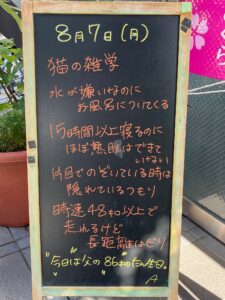 8月7日(月)
猫の雑学
水が嫌いなのに
お風呂についてくる
15時間以上寝るのに
ほぼ熟睡はできて
いない
片目でのぞいている時は
隠れているつもり
時速48キロ以上で
走れるけど
長距離はムリ
"今日は父の86才のたん生日。"
A